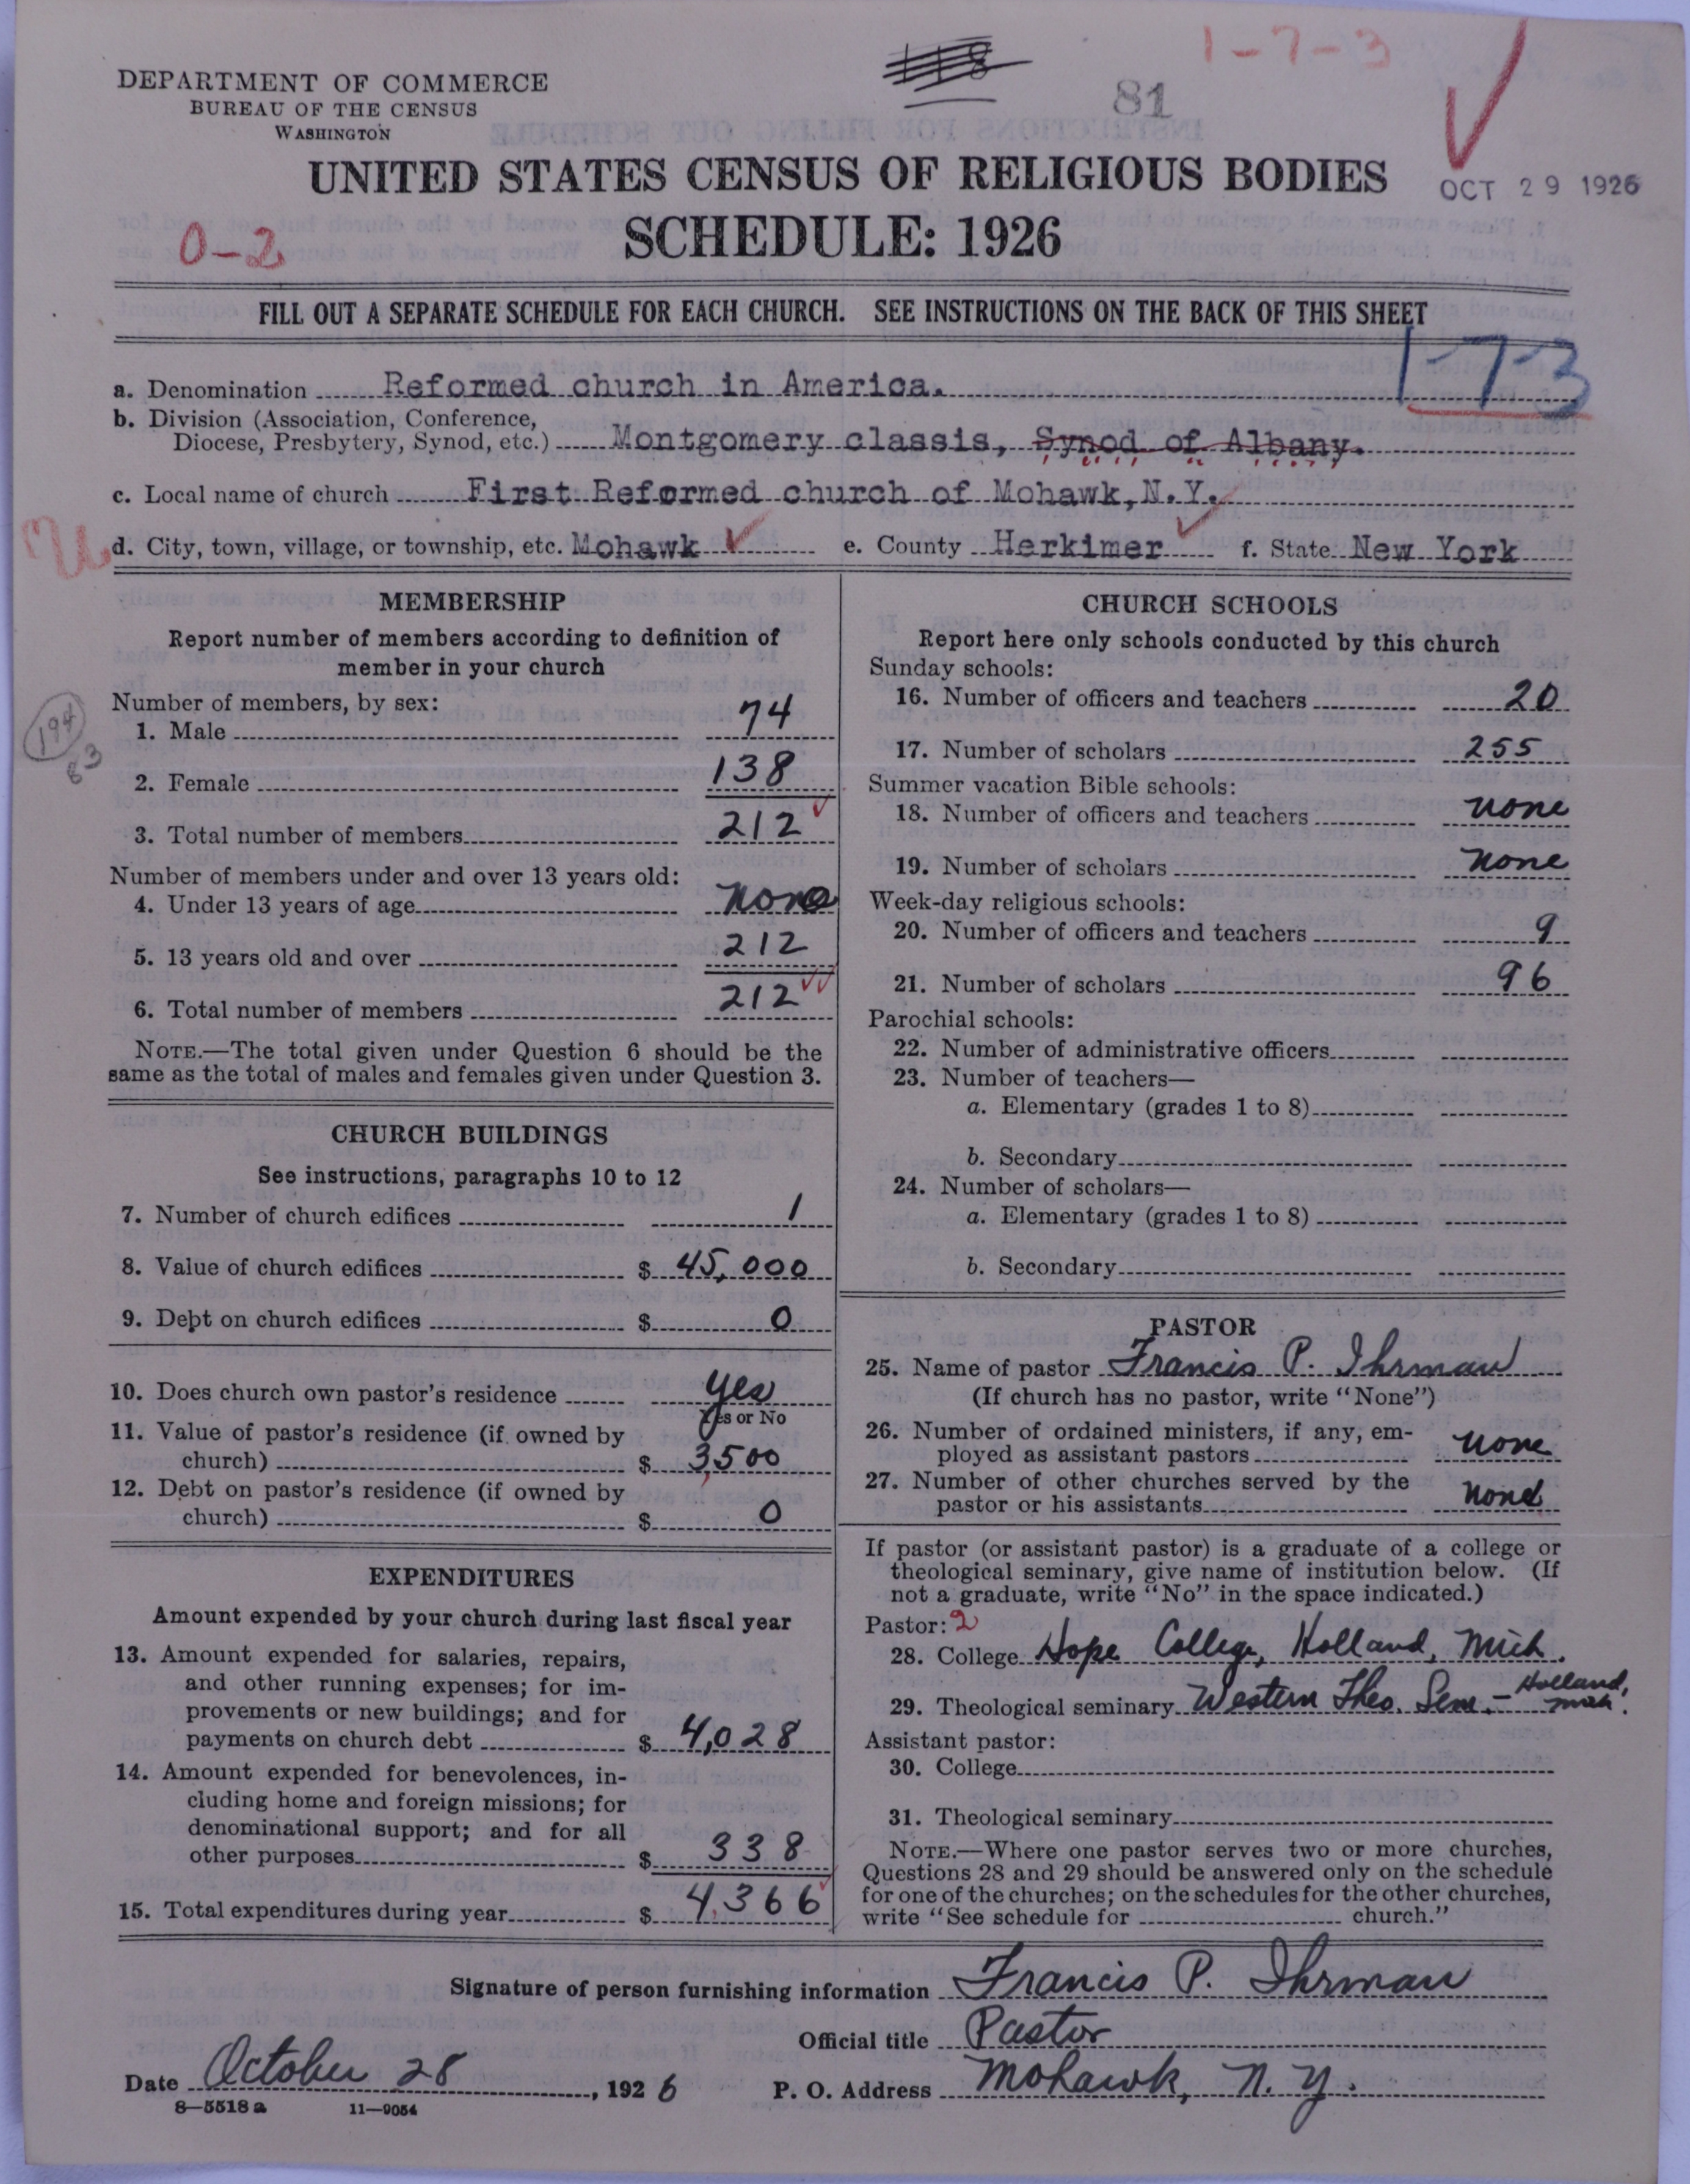 1-7-3
81
DEPARTMENT OF COMMERCE
BUREAU OF THE CENSUS
WASHINGTON
UNITED STATES CENSUS OF RELIGIOUS BODIES
OCT 29 1926
SCHEDULE: 1926
0-2
FILL OUT A SEPARATE SCHEDULE FOR EACH CHURCH. SEE INSTRUCTIONS ON THE BACK OF THIS SHEET
1-7-3
a. Denomination Reformed church in America.
b. Division (Association, Conference,
Diocese, Presbytery, Synod, etc.) Montgomery classis, Synod of Albany.
c. Local name of church First Reformed church of Mohawk, N.Y.
d. City, town, village, or township, etc. Mohawk e. County Herkimer f. State New York
MEMBERSHIP
Report number of members according to definition of
member in your church
Number of members, by sex:
1. Male 74
2. Female 138
3. Total number of members 212
Number of members under and over 13 years old:
4. Under 13 years of age none
5. 13 years old and over 212
6. Total number of members 212
NOTE.—The total given under Question 6 should be the
same as the total of males and females given under Question 3.
CHURCH BUILDINGS
See instructions, paragraphs 10 to 12
7. Number of church edifices 1
8. Value of church edifices $ 45,000
9. Debt on church edifices $ 0
10. Does church own pastor's residence yes
Yes or No
11. Value of pastor's residence (if owned by
church) $ 3,500
12. Debt on pastor's residence (if owned by
church) $ 0
EXPENDITURES
Amount expended by your church during last fiscal year
13. Amount expended for salaries, repairs,
and other running expenses; for im-
provements or new buildings; and for
payments on church debt $ 4,028
14. Amount expended for benevolences, in-
cluding home and foreign missions; for
denominational support; and for all
other purposes $ 338
15. Total expenditures during year $ 4,366
CHURCH SCHOOLS
Report here only schools conducted by this church
Sunday schools:
16. Number of officers and teachers 20
17. Number of scholars 255
Summer vacation Bible schools:
18. Number of officers and teachers none
19. Number of scholars none
Week-day religious schools:
20. Number of officers and teachers 9
21. Number of scholars 96
Parochial schools:
22. Number of administrative officers
23. Number of teachers—
a. Elementary (grades 1 to 8)
b. Secondary
24. Number of scholars—
a. Elementary (grades 1 to 8)
b. Secondary
PASTOR
25. Name of pastor Francis P. Ihrman
(If church has no pastor, write "None")
26. Number of ordained ministers, if any, em-
ployed as assistant pastors none
27. Number of other churches served by the
pastor or his assistants none
If pastor (or assistant pastor) is a graduate of a college or
theological seminary, give name of institution below. (If
not a graduate, write "No" in the space indicated.)
Pastor: 2
28. College Hope College, Holland, Mich.
29. Theological seminary Western Theo. Sem. - Holland, Mich.
Assistant pastor:
30. College
31. Theological seminary
NOTE.—Where one pastor serves two or more churches,
Questions 28 and 29 should be answered only on the schedule
for one of the churches; on the schedules for the other churches,
write "See schedule for church."
Signature of person furnishing information Francis P. Ihrman
Official title Pastor
Date October 28, 1926 P. O. Address Mohawk, N. Y.
8—5518 a 11—9054